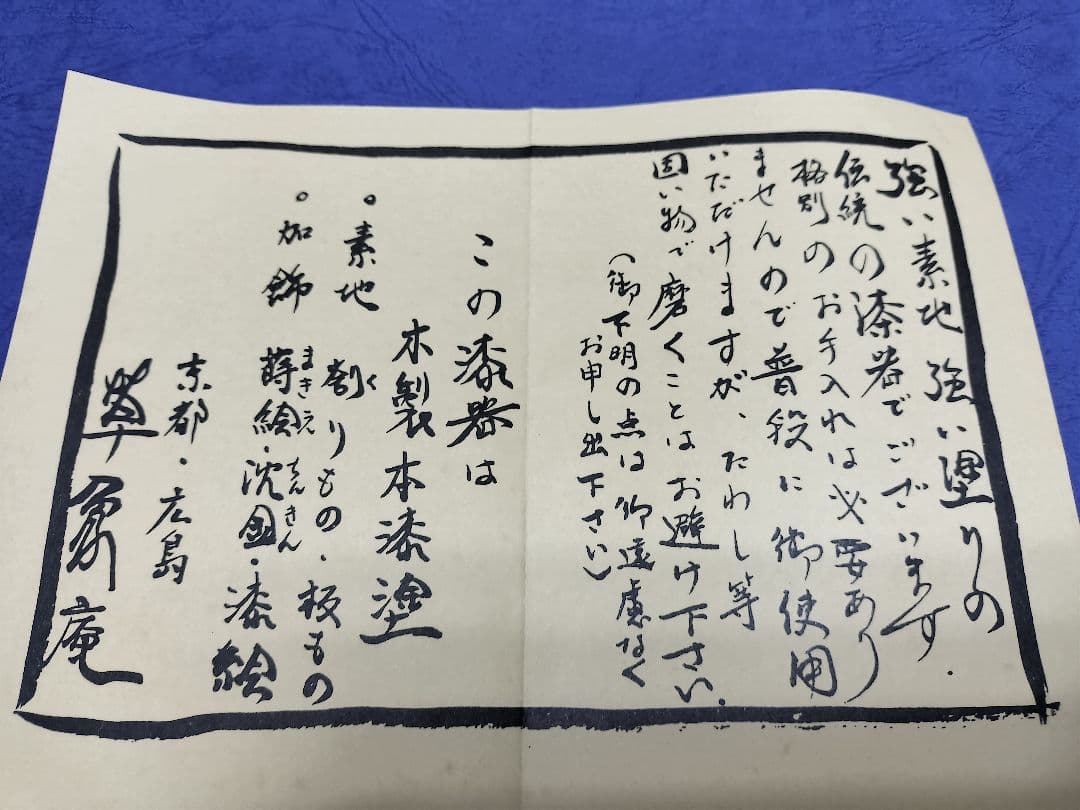 強い素地 強い塗りの
伝統の漆器でございます.
格別のお手入れは必要あり
ませんので普段に御使用
いただけますが、たわし等
固い物で磨くことはお避け下さい.
(御不明の点は御遠慮なく
お申し出下さい)
この漆器は
木製本漆塗
。素地 刳りもの、板もの
く
。加飾 蒔絵・沈金・漆絵
まきえ ちんきん
京都・広島
草象庵